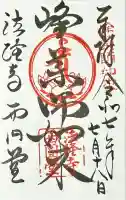 奉拝 令和七年
七月十八日
峰薬師如来
法隆寺 西円堂